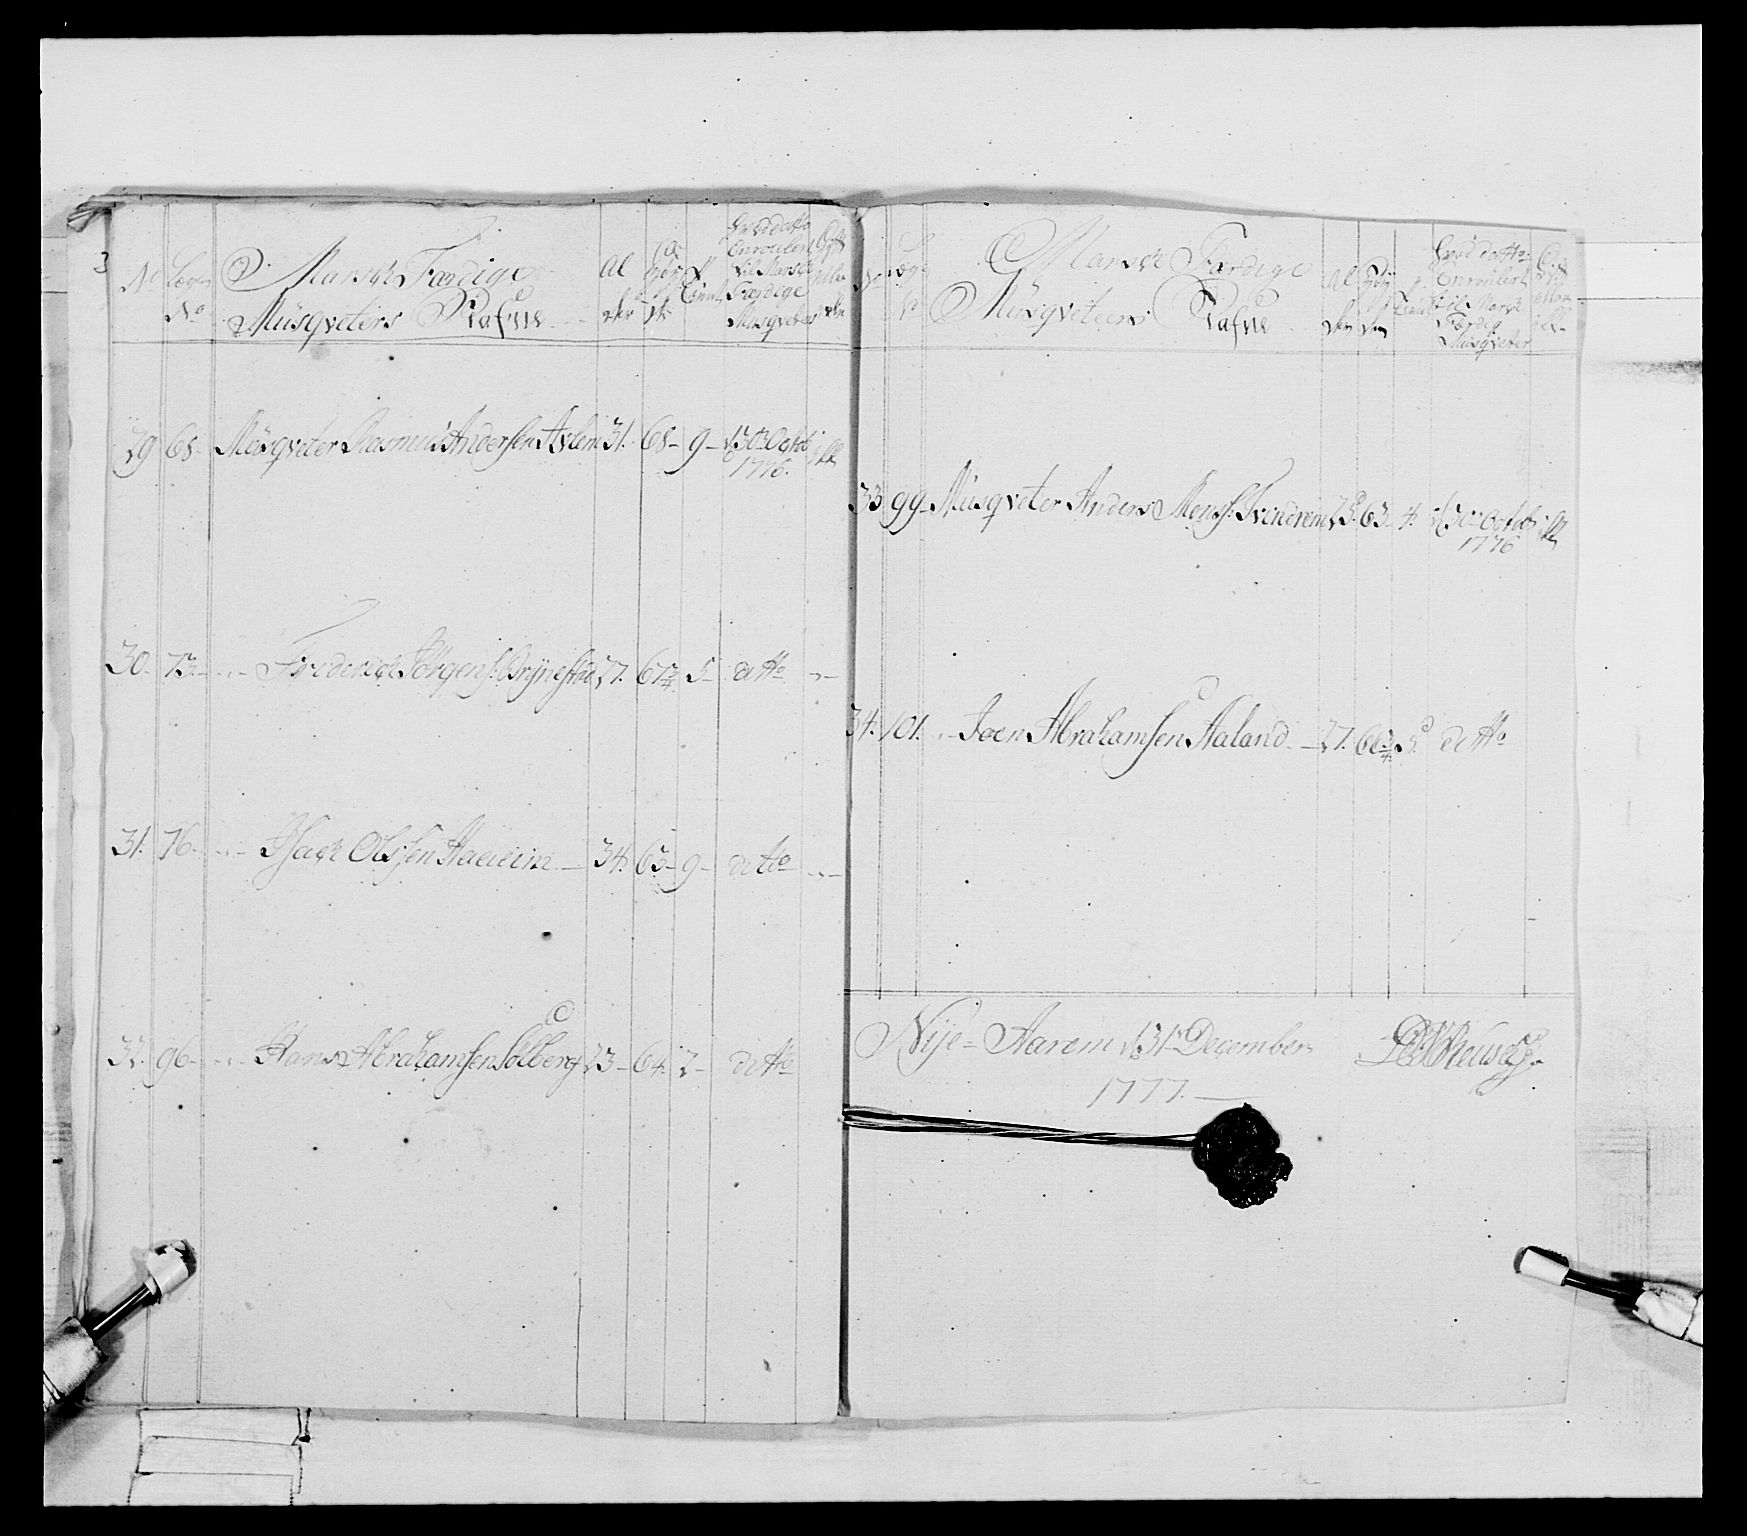 3
No Lægs No
Marsch Færdige
Musqveters Nafne
Al
der
Høy
de
Hvad datto
Enroulert
til Marsch
Færdige
Musqveter
29 68 Musqveter Rasmus Andersen 31. 68 9 d 30 Octob
1776.
30. 73. Friderich Jörgens. Brynestad 27. 67¾ 5 ditto
31. 76. Isach Olssen Aaeeim 34. 63 9 ditto
32. 96 Hans Abrahamsen Solberg 23 64. 2 ditto
No Lægs No
Marsch Færdige
Musqveteers Nafne
Al
der
Høy
den
Hvad datto
Enroulert
til Marsch
Færdig
Musqveter
33 99 Musqveter Anders Monss. Tvindrem 25. 63 4. d 30 Octob
1776
34. 101. Joen Abrahamsen Aaland 27. 66¾ 5. ditto
Nye Aarem d 31 December
1777.